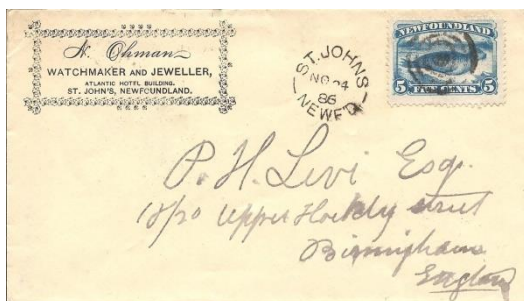 N. Ohman
WATCHMAKER AND JEWELLER,
ATLANTIC HOTEL BUILDING.
ST. JOHN'S, NEWFOUNDLAND.
ST. JOHN'S
NO 24
86
NEWF'D
NEWFOUNDLAND
5 FIVE CENTS 5
P. H. Levi Esq.
18/20 Upper Hockley street
Birmingham
England